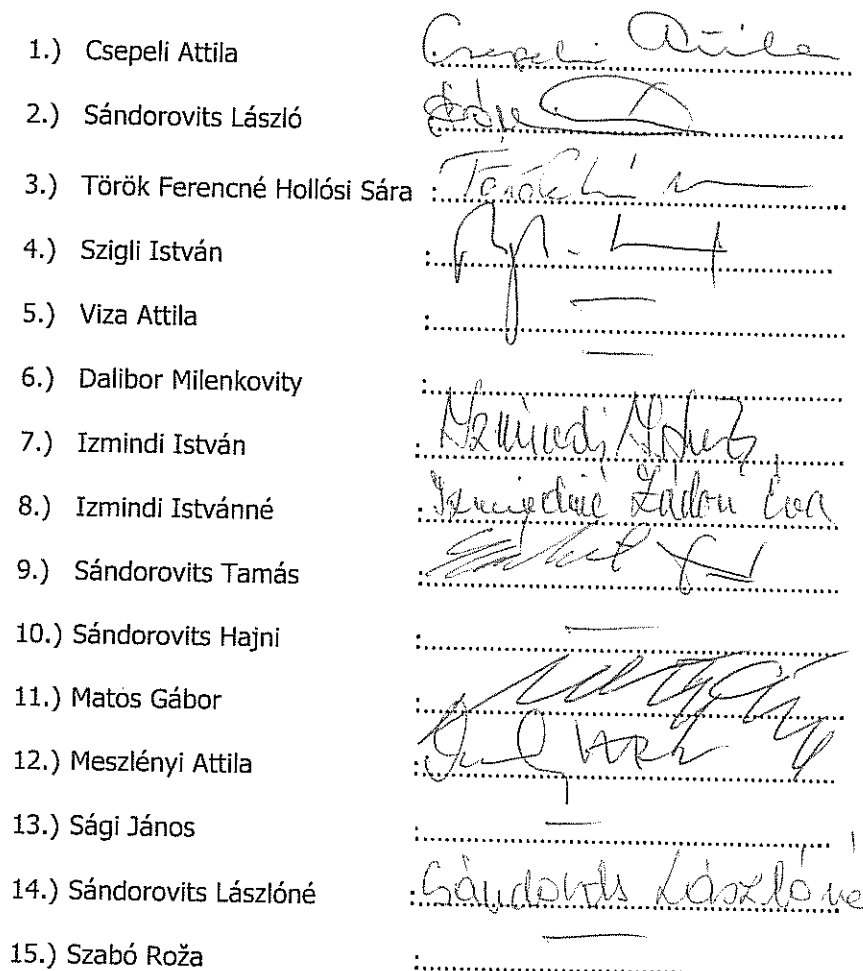 1.) Csepeli Attila : Csepeli Attila
2.) Sándorovits László :
3.) Török Ferencné Hollósi Sára :
4.) Szigli István :
5.) Viza Attila : —
6.) Dalibor Milenkovity : —
7.) Izmindi István : Izmindi István
8.) Izmindi Istvánné : Izmindiné Zádori Éva
9.) Sándorovits Tamás :
10.) Sándorovits Hajni : —
11.) Matos Gábor :
12.) Meszlényi Attila :
13.) Sági János : —
14.) Sándorovits Lászlóné : Sándorovits Lászlóné
15.) Szabó Roža : —